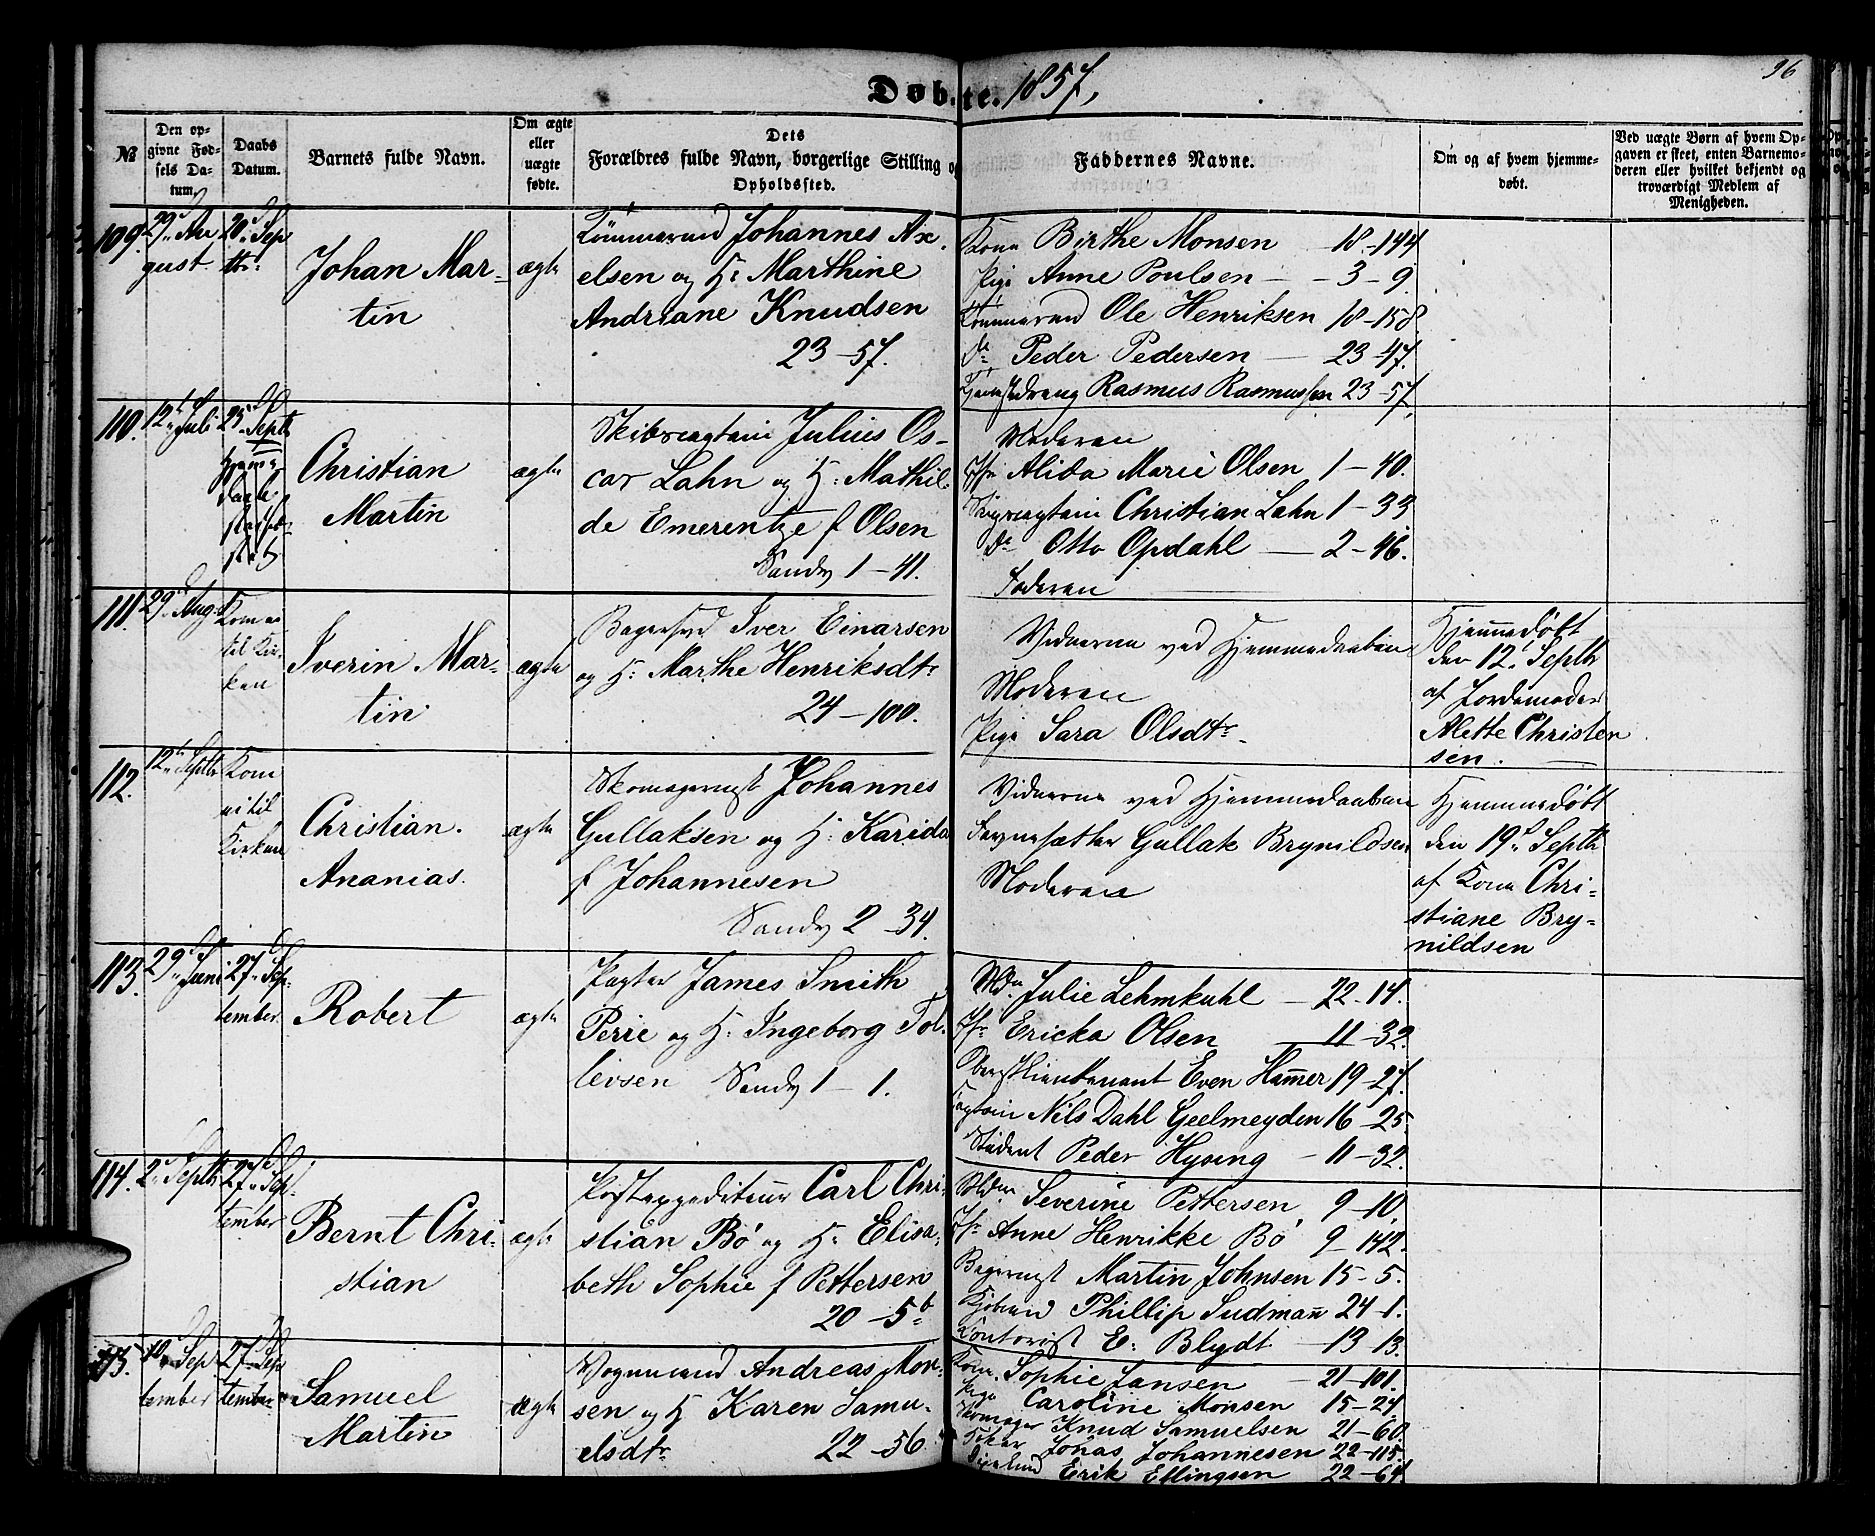 Døbte. 1857,
96
№
Den opgivne Fødsels Datum.
Daabs Datum.
Barnets fulde Navn.
Om ægte eller uægte fødte.
Dets Forældres fulde Navn, borgerlige Stilling og Opholdssted.
Faddernes Navne.
Om og af hvem hjemmedøbt.
Ved uægte Børn af hvem Opgaven er skeet, enten Barnemoderen eller hvilket bekjendt og troværdigt Medlem af Menigheden.
109.
29d Au
gust
20d Sep
tbr:
Johan Mar-
tin
ægte
Tømmermd Johannes Ax-
elsen og H: Marthine
Andriane Knudsen
23-57.
Kone Birthe Monsen 18-144
Pige Anne Poulsen 3-9
Tømmermd Ole Henriksen 18-158
do Peder Pedersen 23-47.
Tjenestedreng Rasmus Rasmussen 23-57,
110.
12t Juli
25d Septb
Hjemme
Christian
Martin
ægte
Skibscaptain Julius Os-
car Lahn og H: Mathil-
de Emerentze f Olsen
Sandv 1-41.
Moderen
Jfr Alida Marie Olsen 1-40.
Skibscaptain Christian Lahn 1-33
do Otto Opdahl 2-46.
Faderen
111.
29d Aug
Kom ei
til Kir-
ken
Iverin Mar-
tin
ægte
Bagersvd Iver Einarsen
og H: Marthe Henriksdtr
24-100.
Vidnerne ved Hjemmedaaben
Moderen
Pige Sara Olsdtr
Hjemmedøbt
den 12. Septb
af Jordemoder
Alette Christen
sen.
112.
12t Septb
Kom
ei til
Kirken
Christian
Ananias.
ægte
Skomagermst Johannes
Gullaksen og H: Karida
f Johannesen
Sandv 2-34.
Vidnerne ved Hjemmedaaben
Gullak Brynildsen
Moderen
Hjemmedøbt
den 19d Septb
af Kone Chri-
stiane Bry-
nildsen
113.
29d Juni
27d Sep-
tember
Robert
ægte
Pagter James Smith
Perie og H: Ingeborg Tol-
levsen Sandv 1-1.
Mdm Julie Lehmkuhl 22-14.
Jfr Ericka Olsen 11-32.
Oberstlieutenant Even Hammer 19-27.
Captain Nils Dahl Geelmeyden 16-25
Student Peder Hysing 11-32.
114.
2d Septb
27d Sep-
tember
Bernt Chri-
stian
ægte
Postexpediteur Carl Chri-
stian Bö og H: Elisa-
beth Sophie f Pettersen
20-5b
Mdm Severine Pettersen 9-10.
Jfr Anne Henrikke Bö 9-142.
Bagermst Martin Johnsen 15-5.
Kjøbmd Phillip Sudmann 24-1.
Kontorist E: Blydt 13-13.
115.
10d Sep
tember
27d Sep
tember
Samuel
Martin
ægte
Vognmand Andreas Mon-
sen og H Karen Samu-
elsdtr 22-56
Kone Sophie Jansen 21-101.
Pige Caroline Monsen 15-24
Skomager Knud Samuelsen 21-60.
Jonas Johannesen 22-115.
Erik Ellingsen 22-64.